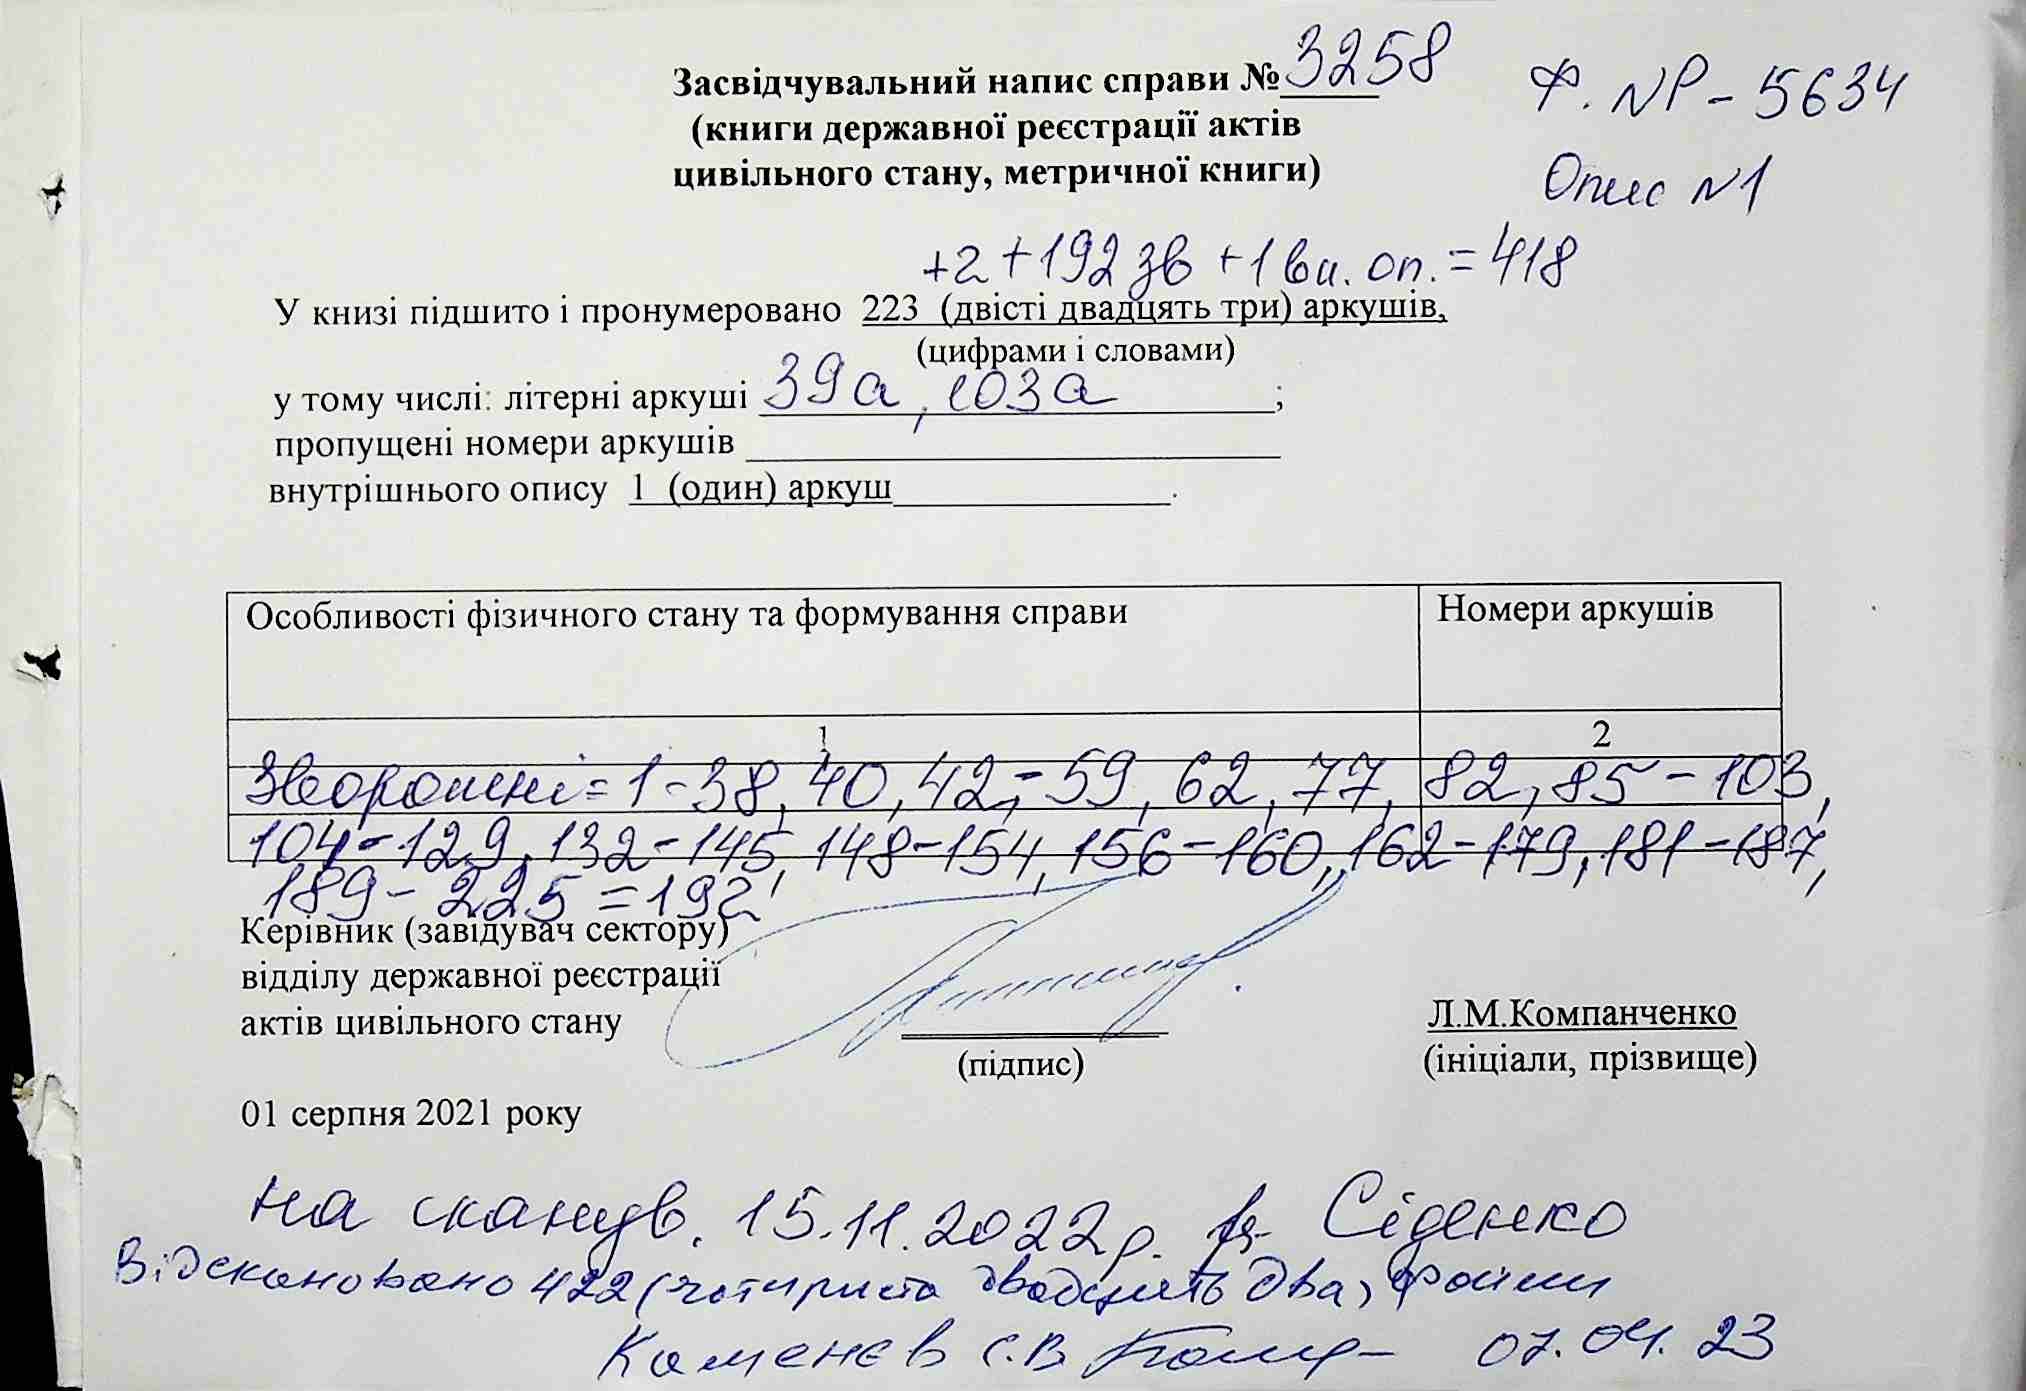 Засвідчувальний напис справи № 3258
Ф. NР - 5634
(книги державної реєстрації актів
цивільного стану, метричної книги)
Опис N1
+2 +192 зв +1 вн. оп. = 418
У книзі підшито і пронумеровано 223 (двісті двадцять три) аркушів,
(цифрами і словами)
у тому числі: літерні аркуші 39а, 103а ;
пропущені номери аркушів
внутрішнього опису 1 (один) аркуш .
Особливості фізичного стану та формування справи
Номери аркушів
1
2
Зворотні = 1-38, 40, 42-59, 62, 77, 82, 85-103,
104-129, 132-145, 148-154, 156-160, 162-179, 181-187,
189-225 = 192
Керівник (завідувач сектору)
відділу державної реєстрації
актів цивільного стану
Л.М.Компанченко
(підпис)
(ініціали, прізвище)
01 серпня 2021 року
на сканув. 15.11.2022р. Сіденко
Відскановано 422 (чотириста двадцять два) файли
Каменєв С.В. 07.04.23